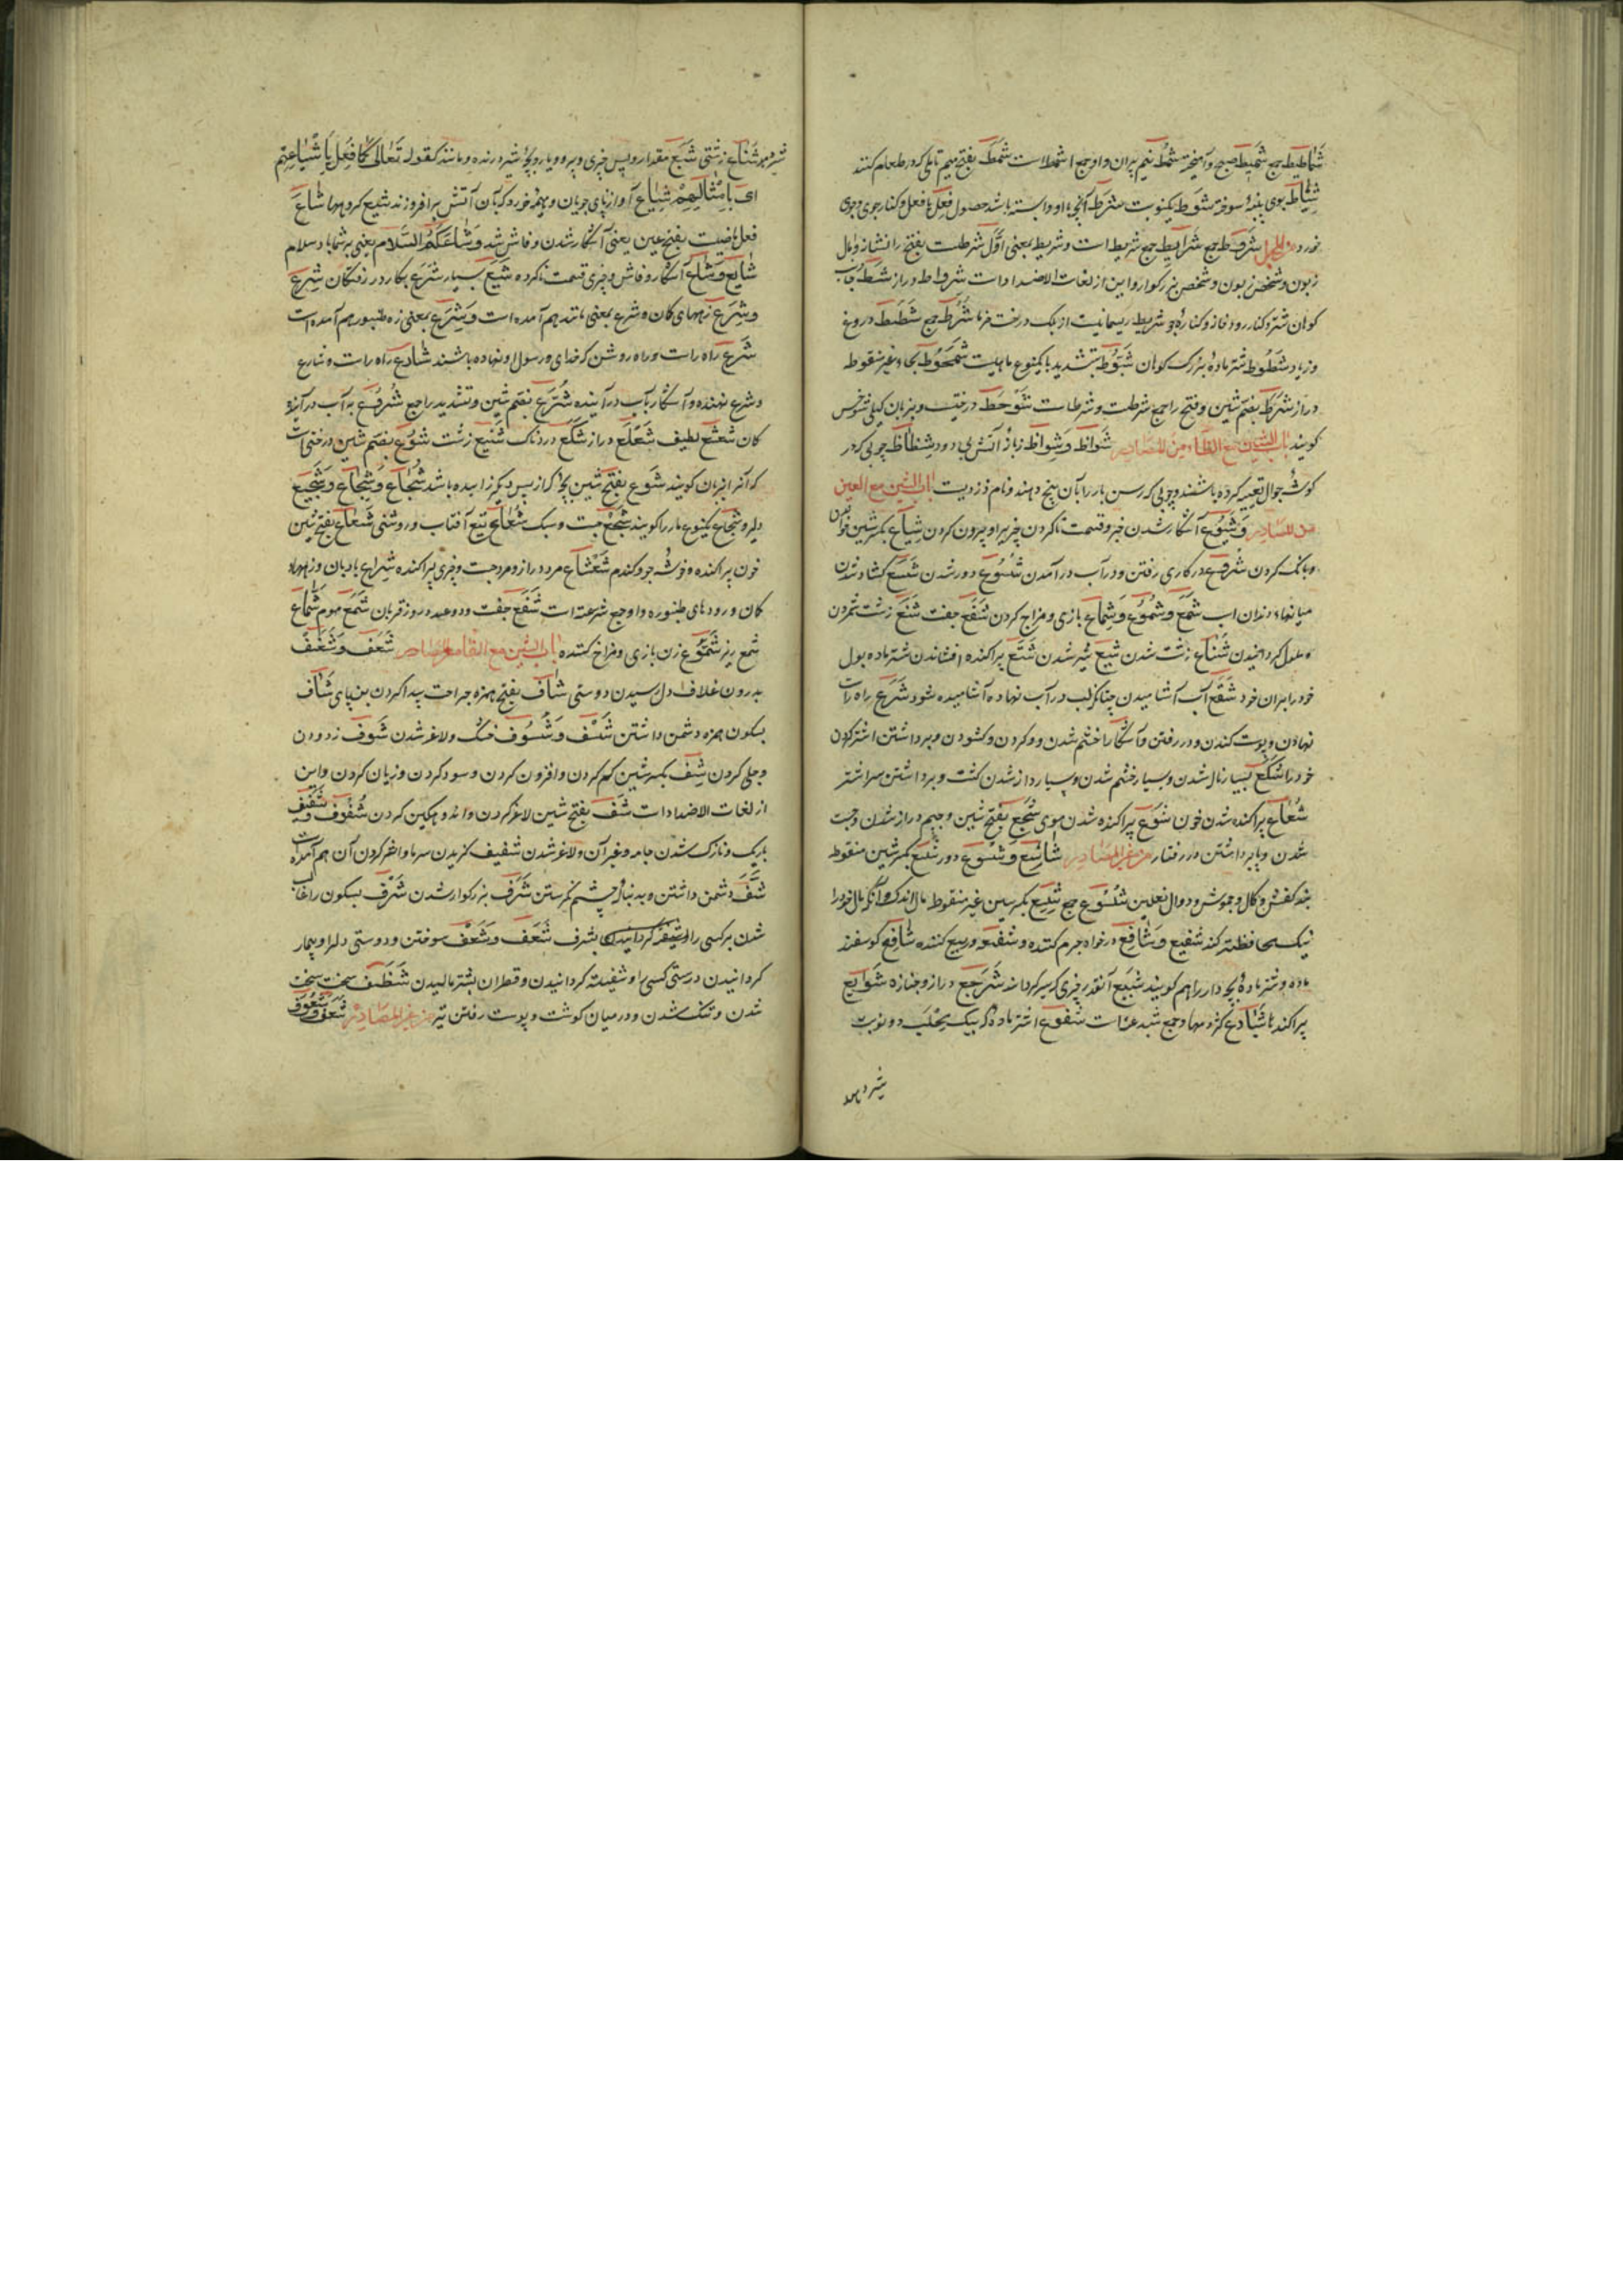 شماطیط جمع شمیط صبح وآمیخته شمط نیم بران واو جمع اشمط است شمط بفتح میم تابلی که در طعام کنند
شیاط بوی پنبهٔ سوخته شوط یکنوبت شرط آنچه باو وابسته باشد حصول فعل یا فعل و کنار جوی وجوی
خورد شرط جمع شرایط جمع شریط است وشریط بمعنی اول شرطست بفتح را نشانه ومال
زبون وشخص زبون وشخص بزرکوار واین از لغات الاضداد است شرواط دراز شط
کوهان شتر وکنار رود شریط ریسمانیست از لیف درخت خرما شرط جمع شطط دروغ
وزیاد شطوط شتر مادهٔ بزرک کوهان شبوط بتشدید با یکنوع ماهیست شمحوط بحاء غیر منقوط
دراز شرط بضم شین وفتح را جمع شرطست وشرطات شوحط درختیست وبزبان
کویند باب الشین مع الظاء من المصادر شواظ وشواظ زبانهٔ آتش بی دود شظاظ چوبی که در
کوشهٔ جوال تعبیه کرده باشند وچوبی که رسن بار را بآن پیچ دهند ونام دزدیست باب الشین مع العین
من المصادر وشیوع آشکار شدن خبر وقسمت ناکردن چیز وبیرون کردن شیاع بکسر شین
وبانک کردن شروع در کاری رفتن ودر آب در آمدن شسوع دور شدن شسع کشاده شدن
میانهاء دندان شمع وشموع وشماع بازی ومزاح کردن شفع جفت شنع زشت شمردن
وملول کردانیدن شناع زشت شدن شبع سیر شدن شتع پراکنده افشاندن شتر ماده بول
خود را بران خود شقع آب آشامیدن چنانکه لب در آب نهاده آشامیده شود شرع راه راست
نهادن وپوست کندن ودر رفتن وآشکارا
خود را شکع بسیار نال شدن وبسیار خشم شدن وبسیار دانه شدن کشت وبرداشتن سر اشتر
شعاع پراکنده شدن خون شوع پراکنده شدن موی شجع بفتح شین وجیم دراز شدن وجست
شدن وپا برداشتن در رفتار من غیر المصادر شاسع وشسوع دور شسع بکسر شین منقوط
بند کفش ودوال نعلین شسوع جمع شسع بکسر سین غیر منقوط مال اندک وآنکه مال خود را
نیک محافظت کند شفیع وشافع درخواه جرم کننده وشفعه وبیع کننده شافع کوسفند
ماده وشتر مادهٔ بچه دار را هم کویند شبع آنقدر چیزی که سیر کرداند شرجع دراز وجنازه شوایع
پراکنده شبادع کژدمها وجمع شبدعه است شفوع اشتر ماده که بیک محلب دو نوبت
شیر دهد
شیر دهد شناع زشتی شیع مقدار وپس چیزی وپیرو ویار وبچهٔ شیر درنده ومانند کقوله تعالی کما فعل باشیاعهم
ای بامثالهم شیاع آواز نای چوپان وهیمهٔ خورد که بآن آتش برافروزند شیع کروهها شاع
فعل ماضیست بفتح عین یعنی آشکار شدن وفاش شد وشاعکم السلام یعنی بر شما باد سلام
شایع وشاع آشکار وفاش وچیزی قسمت ناکرده شیع بسیار شرع بکار در رفتکان شرع
وشرع زههای کمان وشرع بمعنی مانند هم آمده است وشرع بمعنی زه طنبور هم آمده است
شرع راه راست وراه روشن که خدای ورسول او نهاده باشند شارع راه راست وشارع
وشرع نهنده وآشکار بآب درآینده شرع بضم شین وتشدید را جمع شروع به آب درآینده
کان شعشع لطیف شعلع دراز شکع دردناک شنیع زشت شوع بضم شین درختی است
که آنرا بان کویند شوع بفتح شین بچهٔ که از پس دیکر زاییده باشد شجاع وشجاع وشجیع
دلیر وشجاع یکنوع مار را کویند شجع چست وسبک شعاع تیغ آفتاب وروشنی شعاع بفتح شین
خون پراکنده وخوشهٔ جو وکندم شعشاع مرد دراز ومرد چست وچیزی پراکنده شراع بادبان وزهها
کمان ورودهای طنبوره واو جمع شرعة است شفع جفت ودو عید روز قربان شمع موم شماع
شمع ریز شموع زن بازی ومزاح کننده باب الشین مع الفاء من المصادر شعف وشغف
بدرون غلاف دل رسیدن دوستی شاف بفتح همزه جراحت پیدا کردن بن پای شاف
بسکون همزه دشمن داشتن شسف وشسوف خشک ولاغر شدن شوف زدودن
وجلی کردن شف بکسر شین کم کردن وافزون کردن وسود کردن وزیان کردن واین
از لغات الاضداد است شف بفتح شین لاغر کردن واندوهکین کردن شفوف وشفیف
باریک ونازک شدن جامه وغیر آن ولاغر شدن شفیف کزیدن سرما وآخر کردن آن هم آمده است
شنف دشمن داشتن وبدنبال چشم نکریستن شرف بزرکوار شدن شرف بسکون را غالب
شدن بر کسی را بشرف شعف وشعف سوختن ودوستی دلرا وبیمار
کردانیدن درستی کسی را وشیفته کردانیدن وقطران بشتر مالیدن شظف سخت سخت
شدن وتنک شدن ودر میان کوشت وپوست رفتن تیر من غیر المصادر شعوف